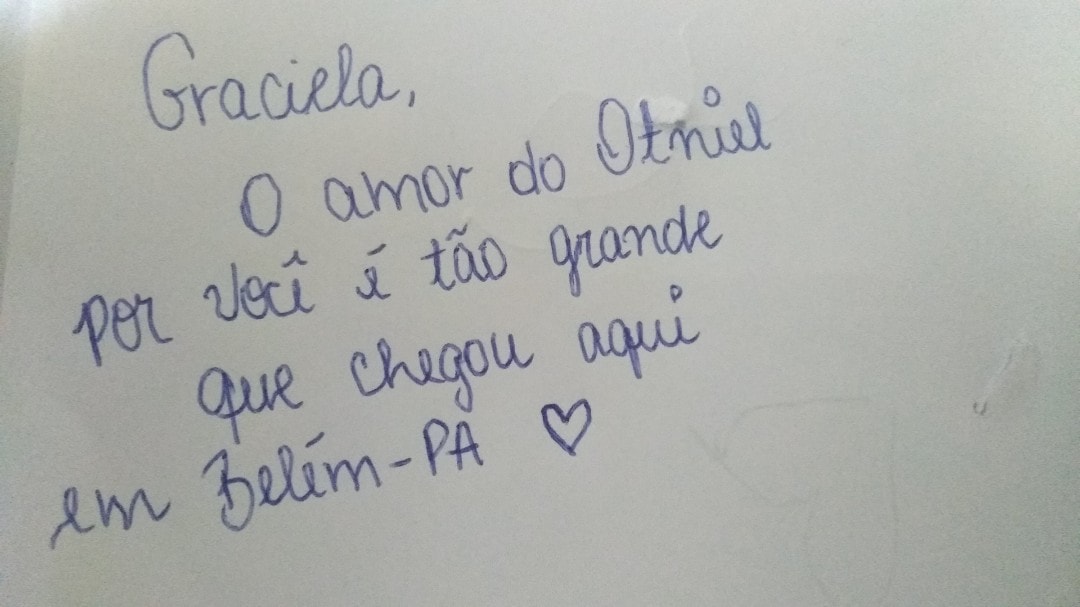 Graciela,
O amor do Otniel
por você é tão grande
que chegou aqui
em Belém-PA ♡